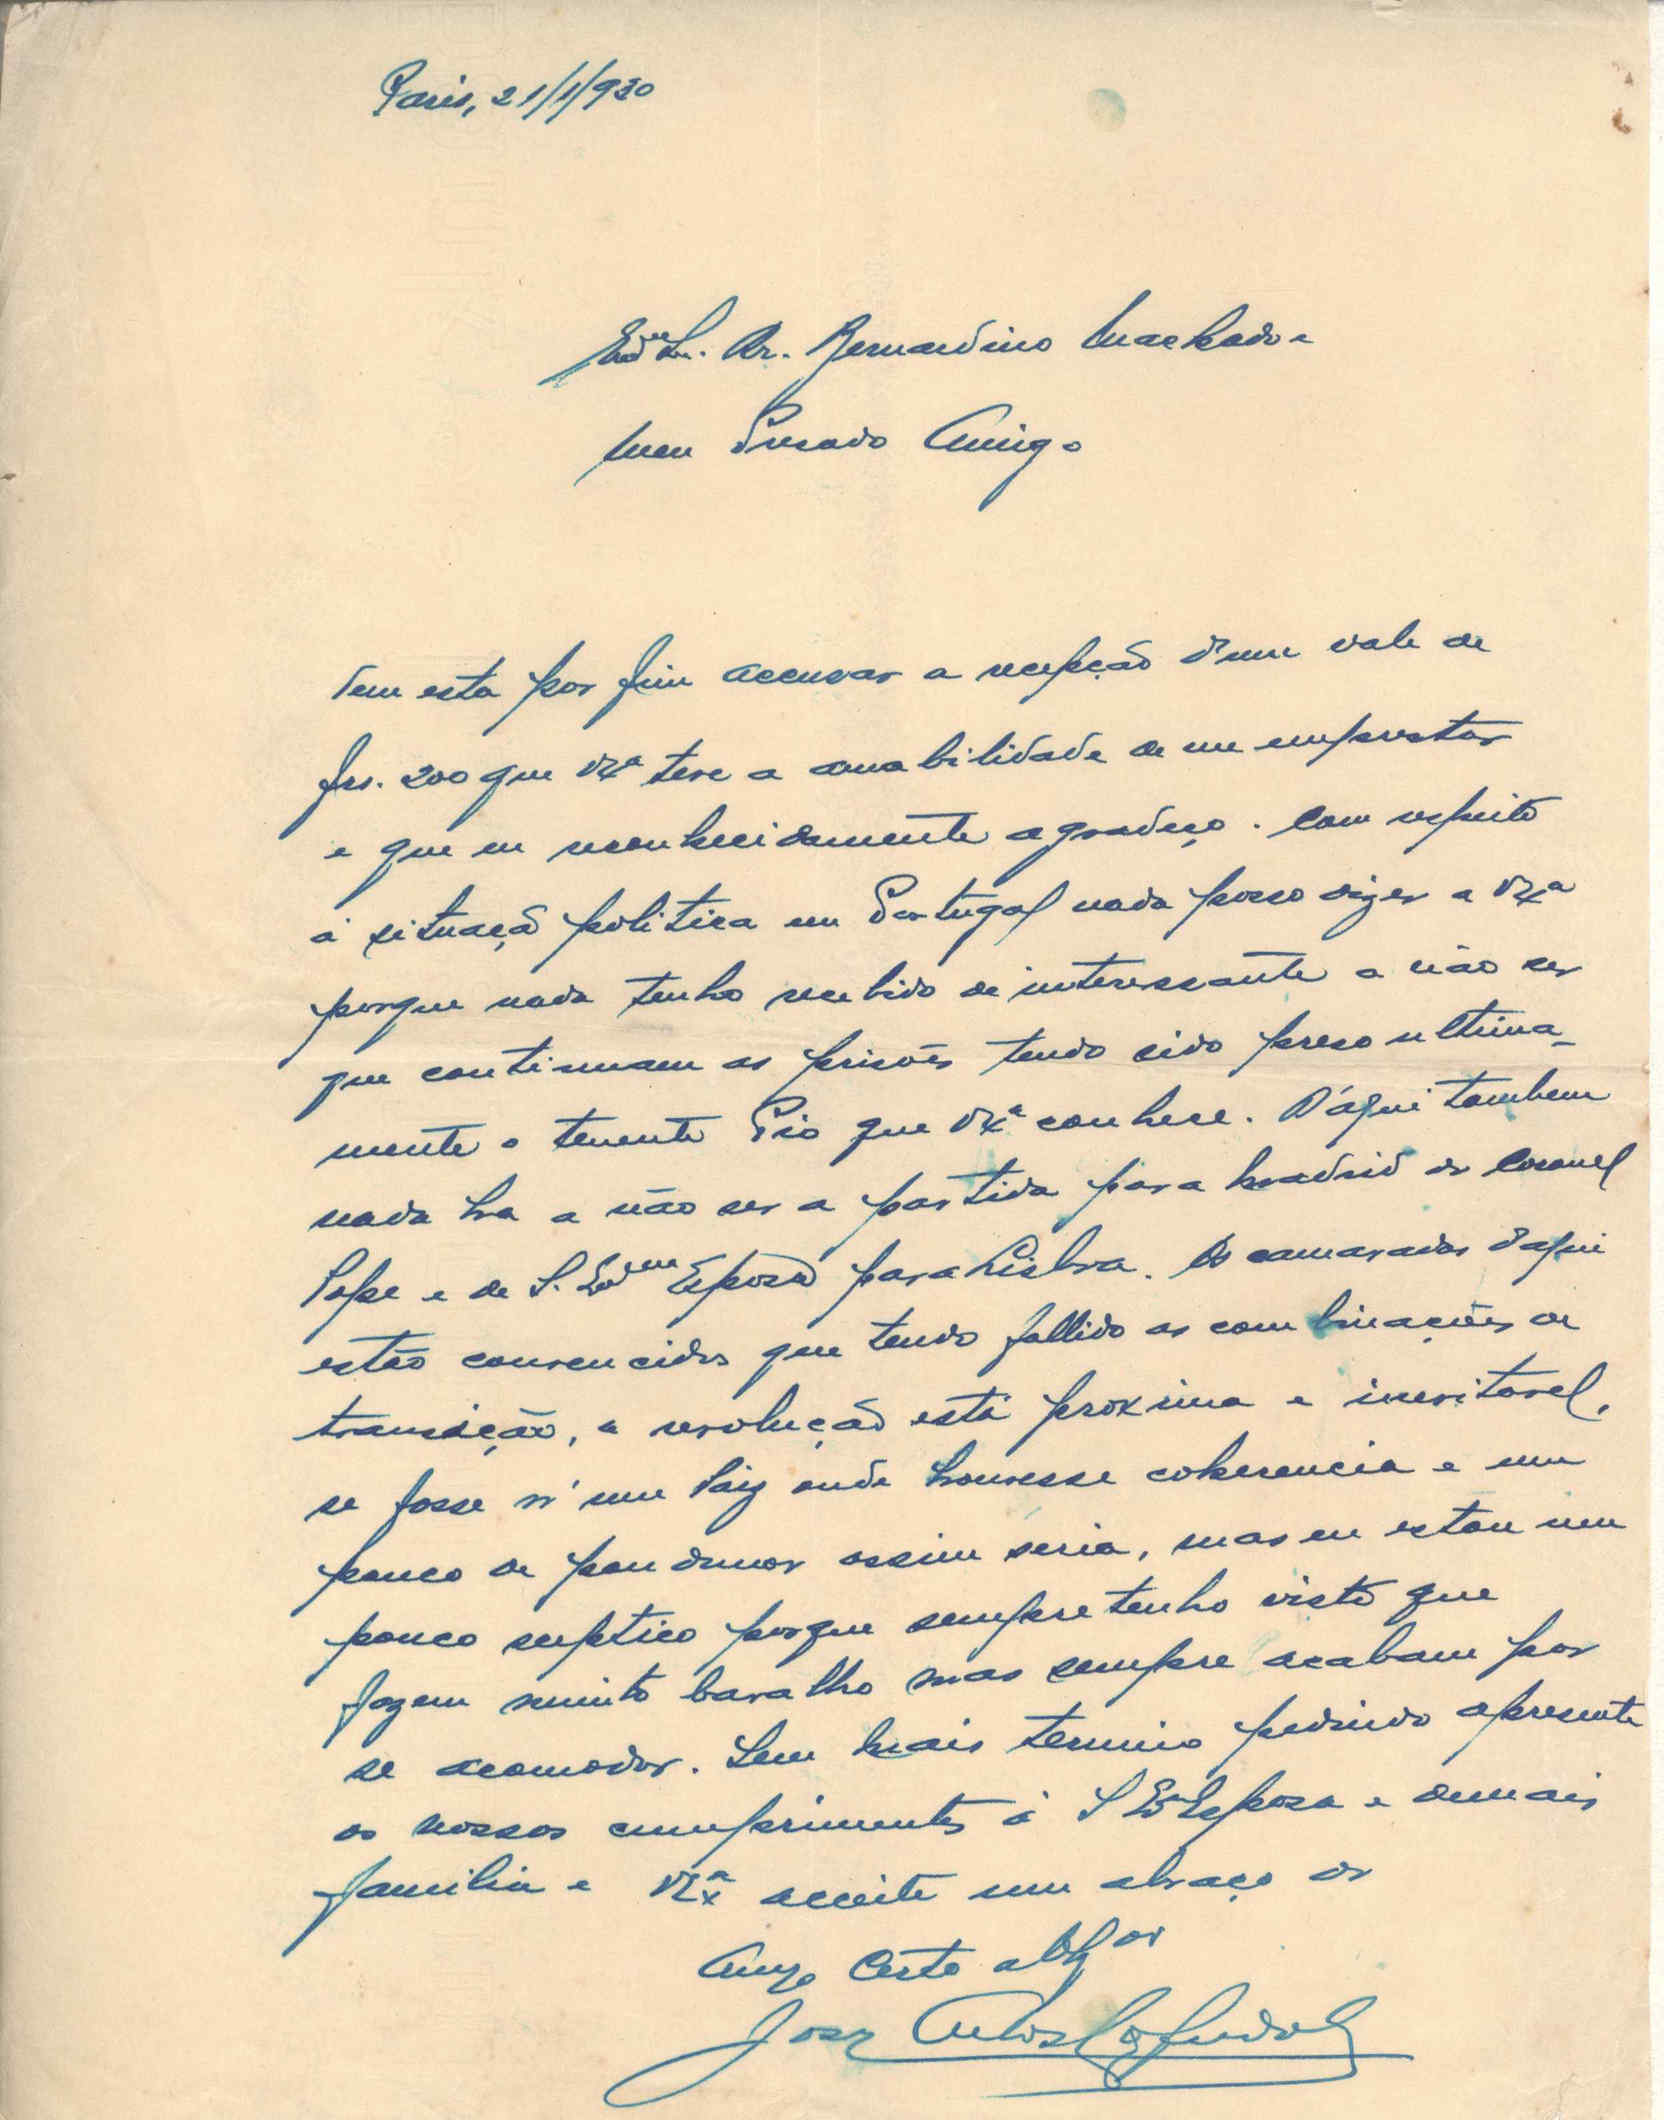 Paris, 21/1/930
Exmo Sr. Dr. Bernardino Machado e
meu Presado Amigo
Vem esta por fim accusar a recepção d'um vale de
frs. 200 que VExª teve a amabilidade de me emprestar
e que eu reconhecidamente agradeço. Com respeito
á situaçã politica em Portugal nada posso dizer a VExª
porque nada tenho recebido de interessante a não ser
que continuam as prisões tendo sido preso ultima-
mente o tenente Pio que VExª conhece. D'áqui tambem
nada ha a não ser a partida para Madrid do Coronel
Pope e de S. Exma Esposa para Lisboa. Os camaradas daqui
estão convencidos que tendo fallido as combinações de
transição, a revolução está proxima e inevitavel,
se fosse n'um Paiz onde houvesse coherencia e um
pouco de pondunor assim seria, mas eu estou um
pouco septico porque sempre tenho visto que
fazem muito baralho mas sempre acabam por
se acomodar. Sem mais termino pedindo apresente
os nossos cumprimentos á S Exª Esposa e demais
familia e VExª acceite um abraço do
Amgo Certo e Obgdo
José Carlos